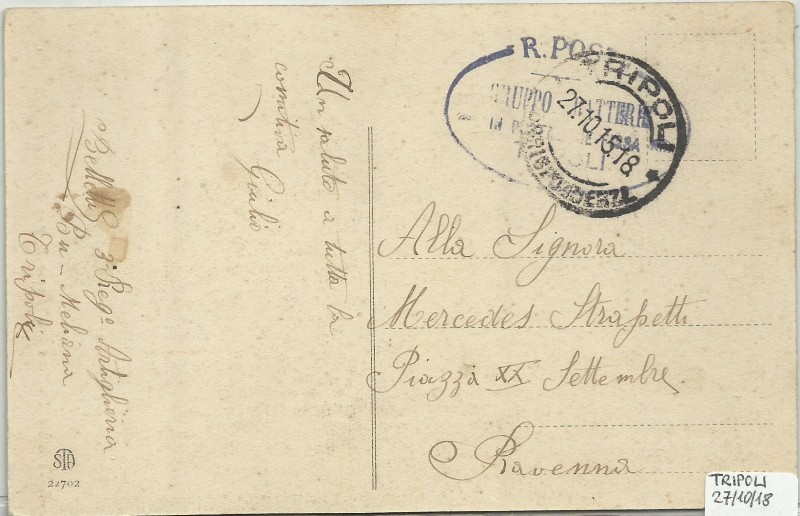 Un saluto a tutta la
comitiva Giulio
3° Reg° Artiglieria
Bu-Meliana
Tripoli
R. POS
GRUPPO BATTERI
TRIPOLI
27.10.15.18
CORRISPONDENZE
Alla Signora
Mercedes Strapetti
Piazza XX Settembre
Ravenna
STA
22702
TRIPOLI
27/10/18